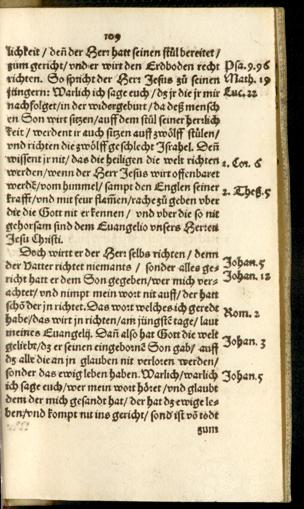 109
lichkeit / deñ der Herr hatt seinen stůl bereitet /
zům gericht / vnd er wirt den Erdboden recht
richten. So spricht der Herr Jesus zů seinen
jüngern: Warlich ich sage euch / dz jr die jr mir
nachfolget / in der widergeburt / da deß mensch
en Son wirt sitzen / auff dem stůl seiner herrlich
keit / werdent ir auch sitzen auff zwölff stülen /
vnd richten die zwölff geschlecht Israhel. Deñ
wissent jr nit / das die heiligen die welt richten
werden / wenn der Herr Jesus wirt offenbaret
werdē / vom himmel / sampt den Englen seiner
krafft / vnd mit feur flam̄en / rache zů geben vber
die die Gott nit erkennen / vnd vber die so nit
gehorsam sind dem Euangelio vnsers Herren
Jesu Christi.
Doch wirtt er der Herr selbs richten / denn
der Vatter richtet niemants / sonder alles ge-
richt hatt er dem Son gegeben / wer mich ver-
achtet / vnd nimpt mein wort nit auff / der hatt
schō der jn richtet. Das wort welches ich geredt
habe / das wirt jn richten / am jüngstē tage / laut
meines Euangelij. Dañ also hat Gott die welt
geliebt / dz er seinen eingebornē Son gab / auff
dz alle die an jn glauben nit verloren werden /
sonder das ewig leben haben. Warlich / warlich
ich sage euch / wer mein wort höret / vnd glaubt
dem der mich gesandt hat / der hat dz ewige le-
ben / vnd kompt nit ins gericht / sond̕ ist vō todt
zum
Psa. 9. 96
Math. 19
Luc. 22
1. Cor. 6
2. Theß. 5
Johan. 5
Johan. 12
Rom. 2
Johan. 3
Johan. 5